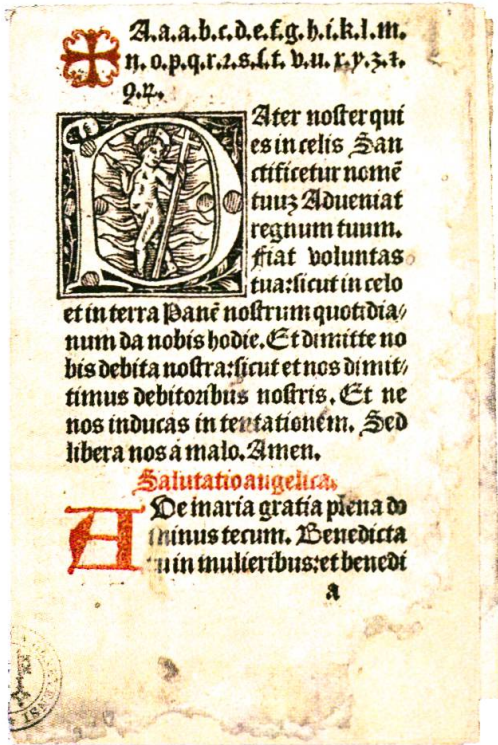 A.a.a.b.c.d.e.f.g.h.i.k.l.m.
n.o.p.q.r.ꝛ.s.ſ.t.v.u.x.y.z.⁊.
ꝯ.ꝝ.
PAter noſter qui
es in celis San
ctificetur nomē
tuuꝫ Adueniat
regnum tuum.
Fiat voluntas
tua:ſicut in celo
et in terra Panē noſtrum quotidia/
num da nobis hodie.Et dimitte no
bis debita noſtra:ſicut et nos dimit/
timus debitoribus noſtris. Et ne
nos inducas in tentationem. Sed
libera nos a malo. Amen.
Salutatio angelica.
AUe maria gratia plena do
minus tecum. Benedicta
tu in mulieribus:et benedi
a